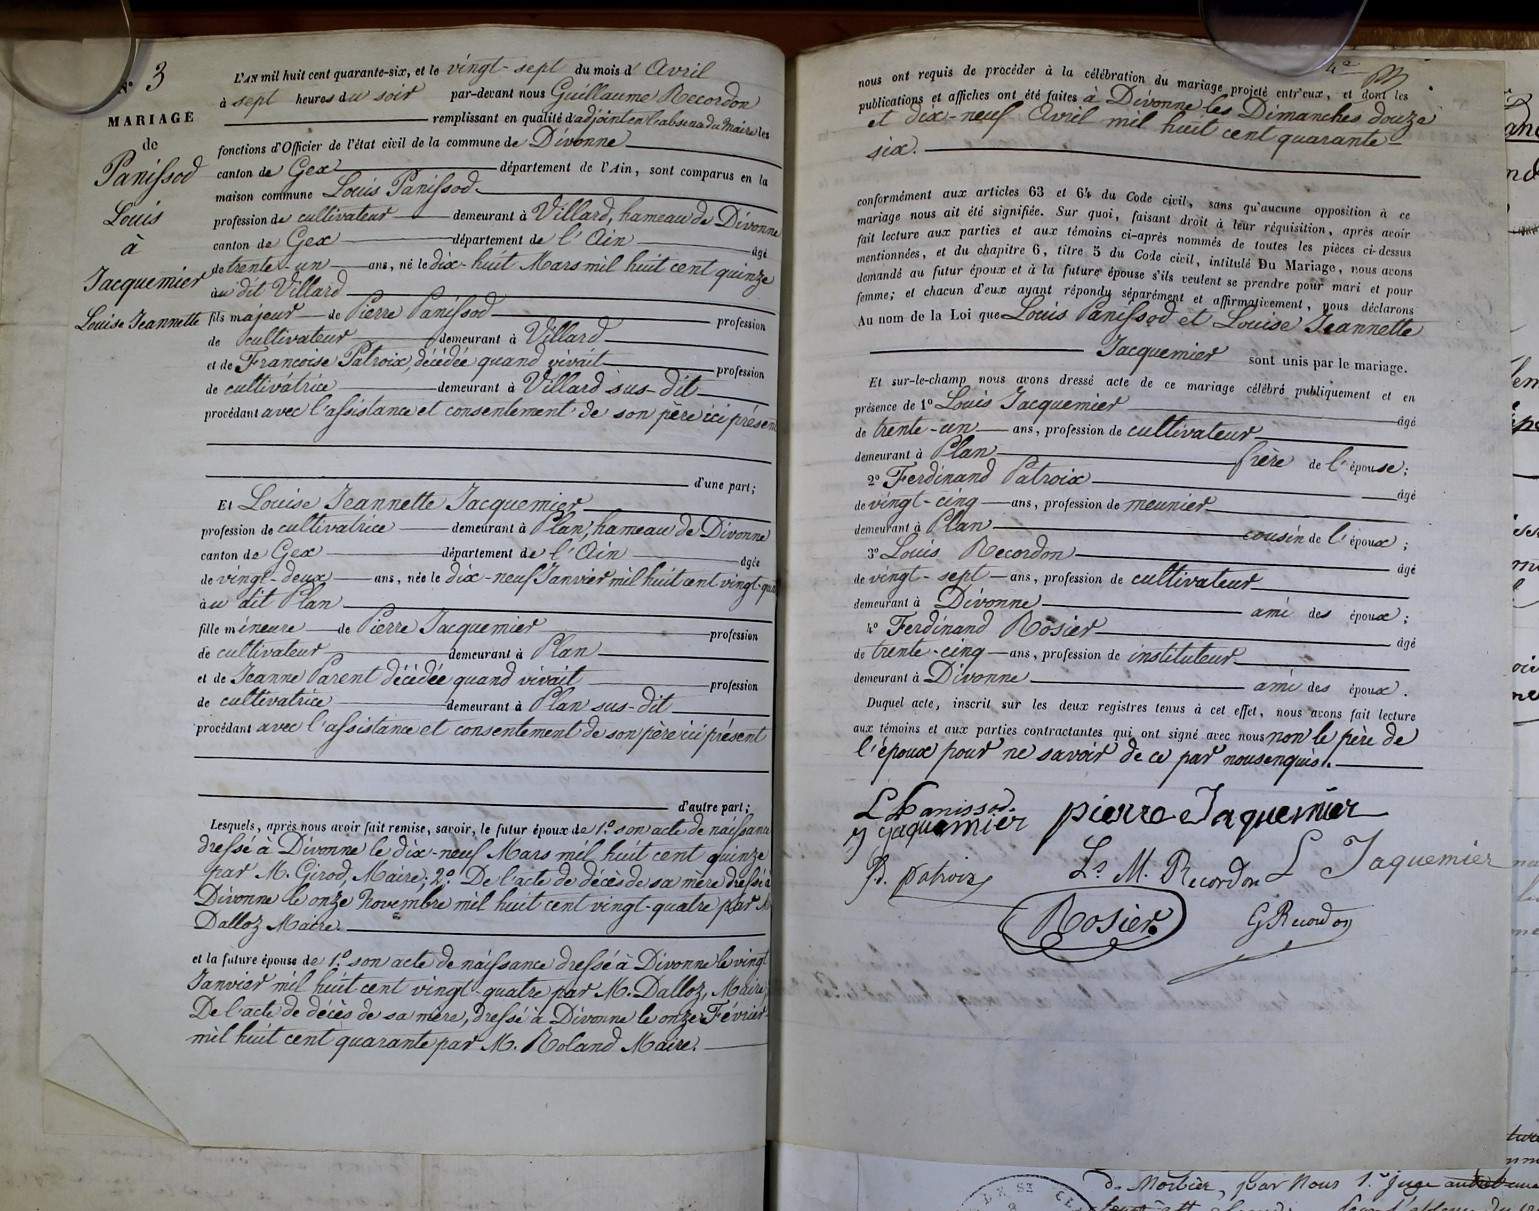 N° 3
MARIAGE
de
Panissod
Louis
à
Jacquemier
Louise Jeannette
L'AN mil huit cent quarante-six, et le vingt-sept du mois d'Avril
à sept heures du soir par-devant nous Guillaume Recordon
remplissant en qualité d'adjoint en l'absence du Maire les
fonctions d'Officier de l'état civil de la commune de Divonne
canton de Gex département de l'Ain, sont comparus en la
maison commune Louis Panissod
profession de cultivateur demeurant à Villard, hameau de Divonne
canton de Gex département de l'Ain âgé
de trente-un ans, né le dix-huit Mars mil huit cent quinze
au dit Villard
fils majeur de Pierre Panissod profession
de cultivateur demeurant à Villard
et de Francoise Patroix, décédée quand vivait profession
de cultivatrice demeurant à Villard sus-dit
procédant avec l'assistance et consentement de son père ici présent
d'une part;
Et Louise Jeannette Jacquemier
profession de cultivatrice demeurant à Plan, hameau de Divonne
canton de Gex département de l'Ain âgée
de vingt-deux ans, née le dix-neuf Janvier mil huit cent vingt-qua
au dit Plan
fille mineure de Pierre Jacquemier profession
de cultivateur demeurant à Plan
et de Jeanne Parent décédée quand vivait profession
de cultivatrice demeurant à Plan sus-dit
procédant avec l'assistance et consentement de son père ici présent
d'autre part;
Lesquels, après nous avoir fait remise, savoir, le futur époux de 1.° son acte de naissance
dressé à Divonne le dix-neuf Mars mil huit cent quinze
par M. Girod, Maire; 2.° De l'acte de décès de sa mère dressé à
Divonne le onze Novembre mil huit cent vingt-quatre par M
Dalloz Maire.
et la future épouse de 1.° son acte de naissance dressé à Divonne le vingt
Janvier mil huit cent vingt-quatre par M. Dalloz, Maire
De l'acte de décès de sa mère, dressé à Divonne le onze Février
mil huit cent quarante par M. Roland Maire.
4e
nous ont requis de procéder à la célébration du mariage projeté entr'eux, et dont les
publications et affiches ont été faites à Divonne les Dimanches douze
et dix-neuf Avril mil huit cent quarante-
six.
conformément aux articles 63 et 64 du Code civil, sans qu'aucune opposition à ce
mariage nous ait été signifiée. Sur quoi, faisant droit à leur réquisition, après avoir
fait lecture aux parties et aux témoins ci-après nommés de toutes les pièces ci-dessus
mentionnées, et du chapitre 6, titre 5 du Code civil, intitulé Du Mariage, nous avons
demandé au futur époux et à la future épouse s'ils veulent se prendre pour mari et pour
femme; et chacun d'eux ayant répondu séparément et affirmativement, nous déclarons
Au nom de la Loi que Louis Panissod et Louise Jeannette
Jacquemier sont unis par le mariage.
Et sur-le-champ nous avons dressé acte de ce mariage célébré publiquement et en
présence de 1° Louis Jacquemier âgé
de trente-un ans, profession de cultivateur
demeurant à Plan frère de l'épouse;
2° Ferdinand Patroix âgé
de vingt-cinq ans, profession de meunier
demeurant à Plan cousin de l'époux;
3° Louis Recordon âgé
de vingt-sept ans, profession de cultivateur
demeurant à Divonne ami des époux;
4° Ferdinand Rosier âgé
de trente-cinq ans, profession de instituteur
demeurant à Divonne ami des époux.
Duquel acte, inscrit sur les deux registres tenus à cet effet, nous avons fait lecture
aux témoins et aux parties contractantes qui ont signé avec nous non le père de
l'époux pour ne savoir de ce par nous enquis.
L Panissod
pierre Jaquemier
J Jaquemier
fd. patroix
Ls M. Recordon
L Jaquemier
Rosier
G Recordon
de Morbier, par Nous 1.er Juge